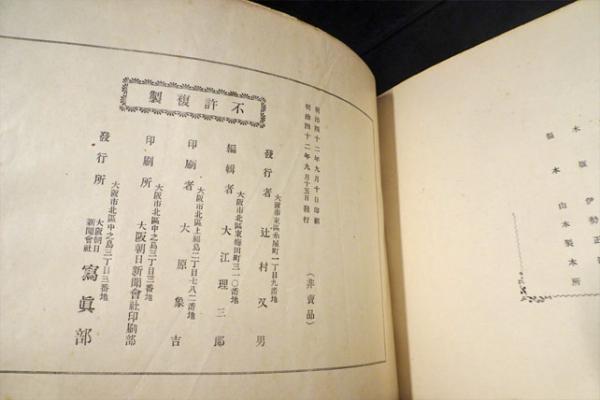 明治四十二年九月十日印刷
明治四十二年九月十五日發行
(非賣品)
不許複製
大阪市東區糸屋町一丁目九番地
發行者 辻村又男
大阪市北區東梅田町三一〇番地
編輯者 大江理三郎
大阪市北區上福島二丁目七八二番地
印刷者 大原象吉
大阪市北區中之島三丁目三番地
印刷所 大阪朝日新聞會社印刷部
大阪市北區中之島三丁目三番地
發行所 大阪朝日新聞會社 寫眞部
木版 伊勢正
製本 山本製本所